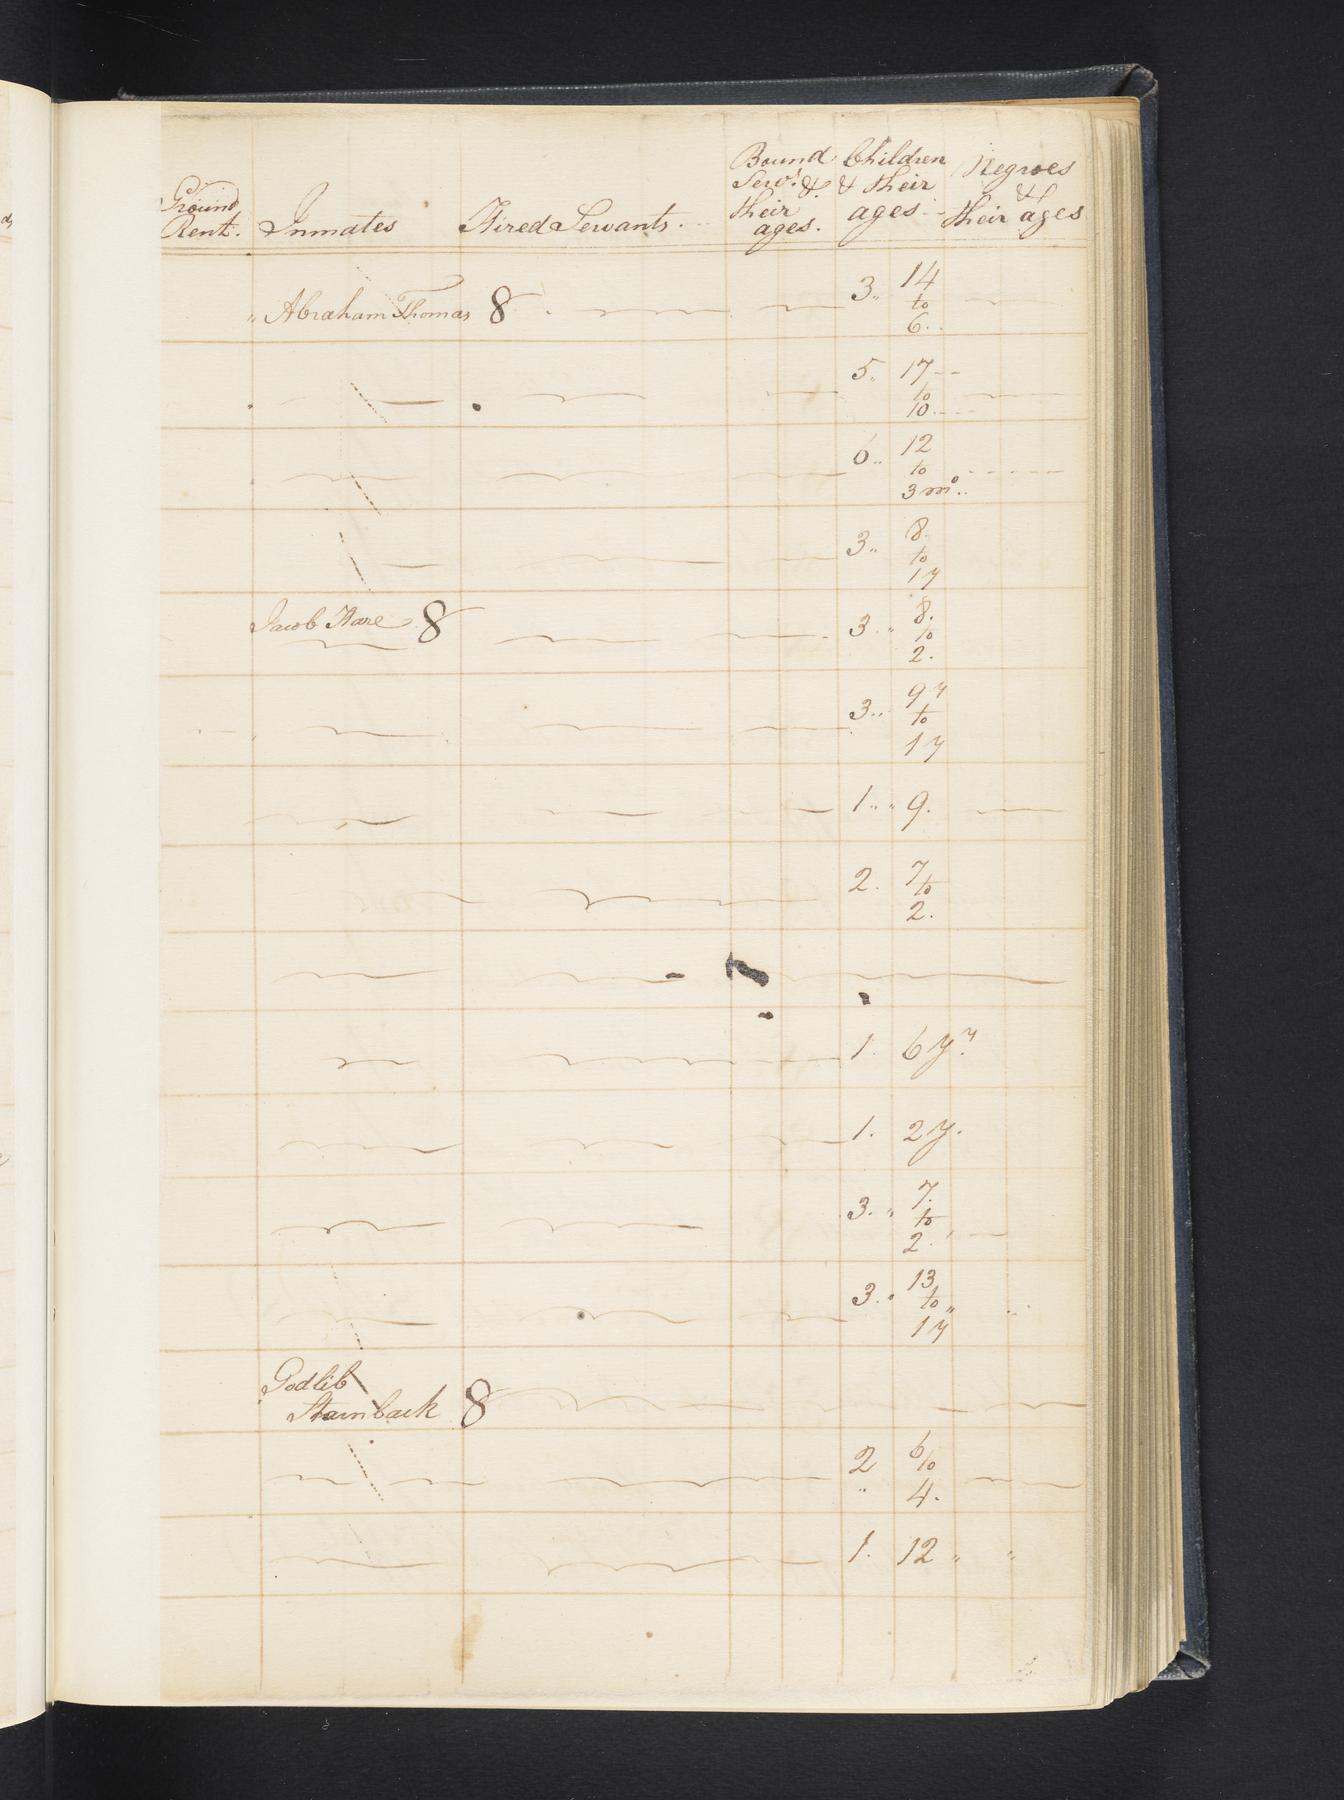 Ground Rent.
Inmates
Hired Servants.
Bound Servt. & their ages.
Children & their ages
Negroes & their ages
" Abraham Thomas 8 3 14 to 6
5 17 to 10
6 12 to 3 mo.
3 8 to 1 y
Jacob Hare 8 3 8 to 2.
3 9 y to 1 y
1 9.
2. 7 to 2.
1. 6 yr.
1. 2 y.
3. 7. to 2.
3. 13 to 1 y
Godlib
Stainback 8
2 6 to 4.
1. 12